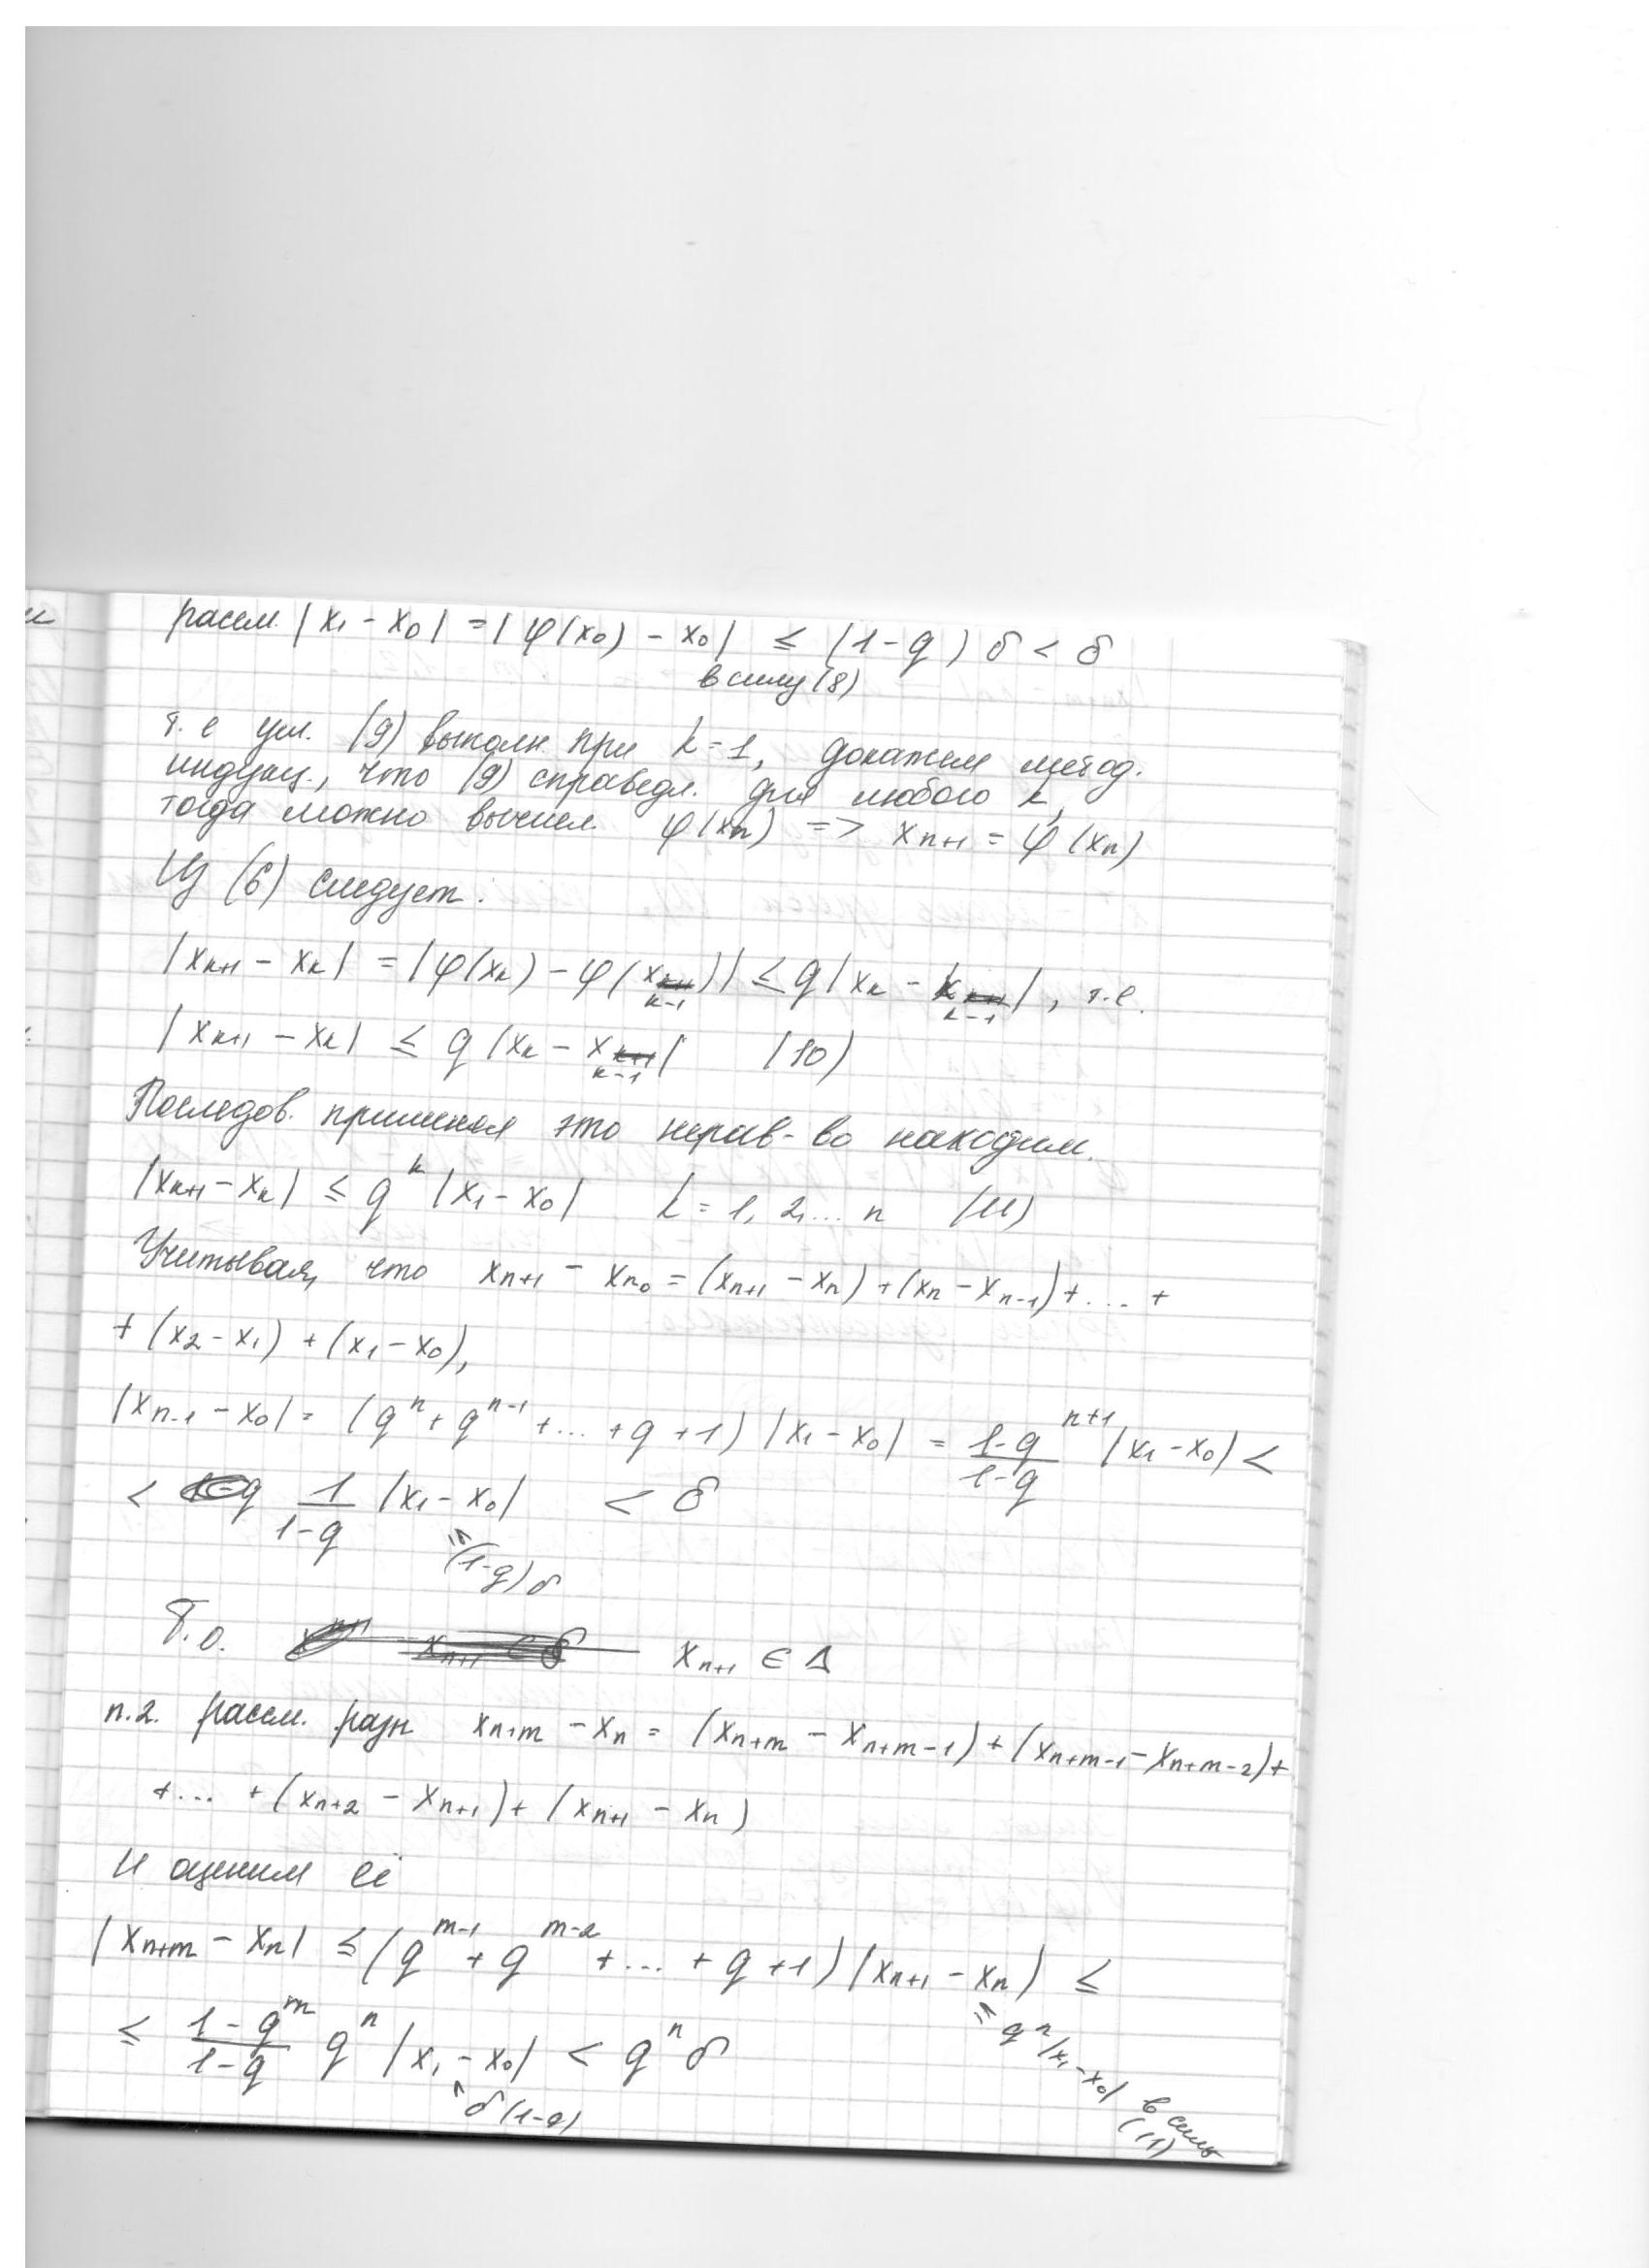 рассм. |x₁ - x₀| = |φ(x₀) - x₀| ≤ (1-q)δ < δ
в силу (8)
т.е усл. (9) выполн при k=1, докажем метод.
индукц., что (9) справедл. для любого k,
тогда можно вычисл. φ(xₙ) => xₙ₊₁ = φ(xₙ)
Из (6) следует.
|xₖ₊₁ - xₖ| = |φ(xₖ) - φ(xₖ₋₁)| ≤ q|xₖ - xₖ₋₁|, т.е.
|xₖ₊₁ - xₖ| ≤ q|xₖ - xₖ₋₁| (10)
Последов. применяя это нерав-во находим.
|xₖ₊₁ - xₖ| ≤ qᵏ |x₁ - x₀| k = 1, 2, ... n (11)
Учитывая, что xₙ₊₁ - xₙ₀ = (xₙ₊₁ - xₙ) + (xₙ - xₙ₋₁) + ... +
+ (x₂ - x₁) + (x₁ - x₀),
|xₙ₋₁ - x₀| = (qⁿ + qⁿ⁻¹ + ... + q + 1) |x₁ - x₀| = (1-qⁿ⁺¹)/(1-q) |x₁ - x₀| <
< 1/(1-q) |x₁ - x₀| < δ
≤ (1-q)δ
Т.о. xₙ₊₁ ∈ Δ
п.2. рассм. разн xₙ₊ₘ - xₙ = (xₙ₊ₘ - xₙ₊ₘ₋₁) + (xₙ₊ₘ₋₁ - xₙ₊ₘ₋₂) +
+ ... + (xₙ₊₂ - xₙ₊₁) + (xₙ₊₁ - xₙ)
и оценим её
|xₙ₊ₘ - xₙ| ≤ (qᵐ⁻¹ + qᵐ⁻² + ... + q + 1) |xₙ₊₁ - xₙ| ≤
≤ qⁿ|x₁ - x₀| в силу (11)
≤ (1-qᵐ)/(1-q) qⁿ |x₁ - x₀| < qⁿ δ
< δ(1-q)